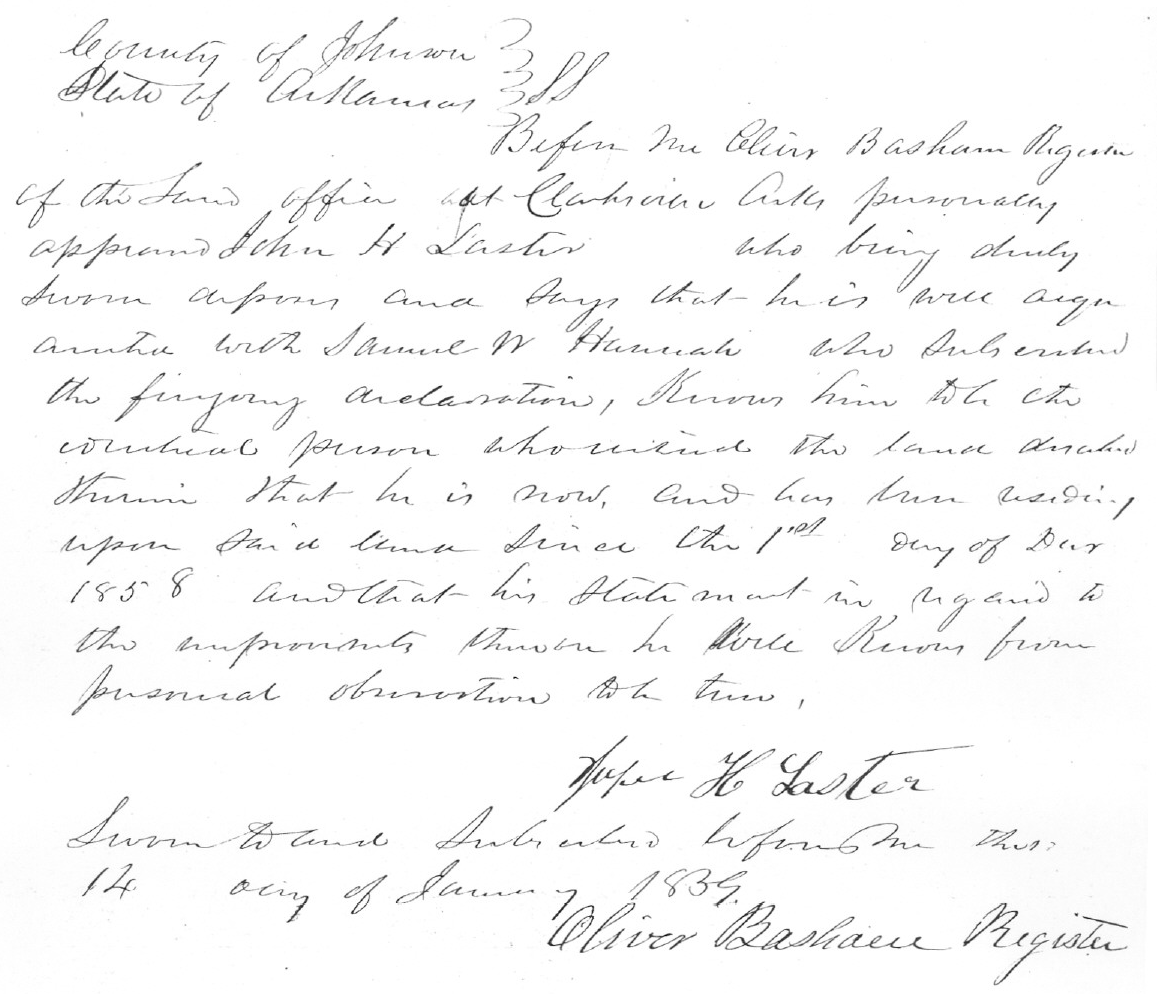 County of Johnson
State of Arkansas } SS
Before me Oliver Basham Register
of the Land office at Clarksville Arks personally
appeared John H Laster who being duly
sworn deposes and says that he is well acqu
ainted with Samuel W Hannah who subscribed
the foregoing declaration, Knows him to be the
identical person who entered the land described
therein that he is now, and has been residing
upon said land since the 1st day of Decr
1858 and that his statement in regard to
the improvements thereon he well Knows from
personal observation to be true,
H Laster
Sworn to and Subscribed before me this
14 day of January 1859.
Oliver Basham Register